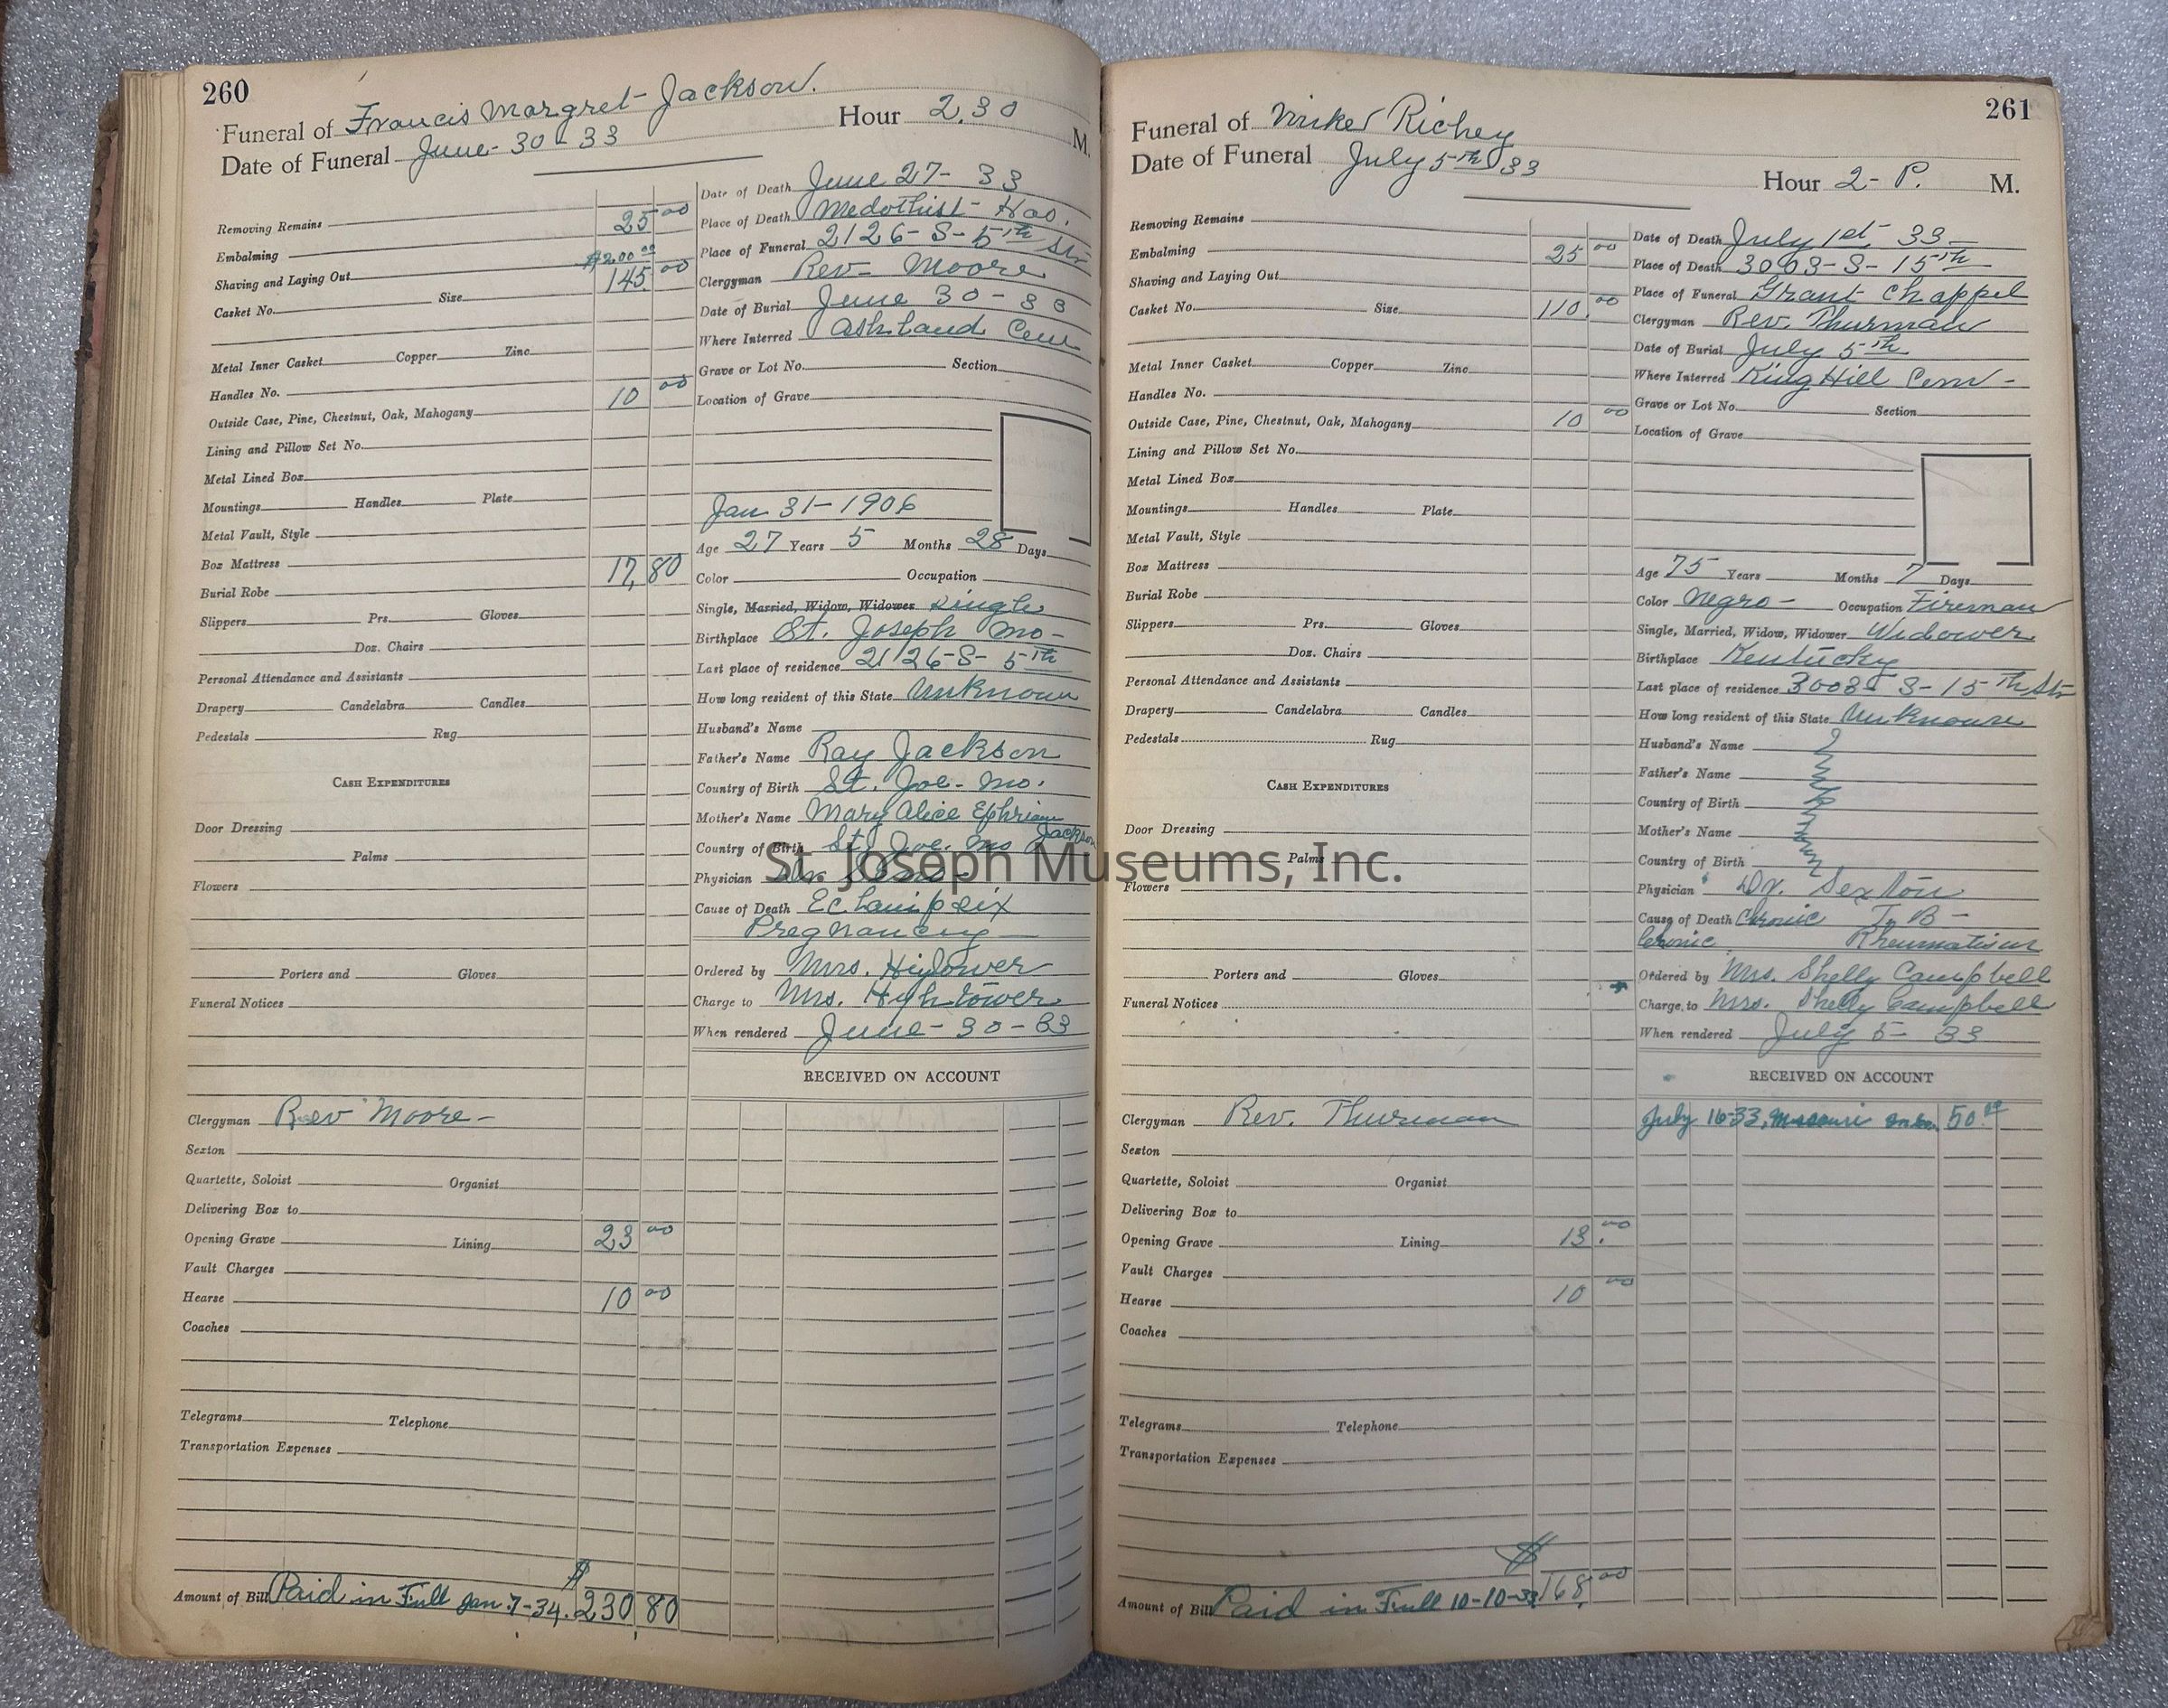 260
Funeral of Francis Margret Jackson.
Date of Funeral June- 30-33
Hour 2.30 M.
Removing Remains
Embalming 25 00
Shaving and Laying Out $2.00 00
Casket No. Size 145. 00
Metal Inner Casket Copper Zinc
Handles No.
Outside Case, Pine, Chestnut, Oak, Mahogany 10 00
Lining and Pillow Set No.
Metal Lined Box
Mountings Handles Plate
Metal Vault, Style
Box Mattress
Burial Robe 17, 80
Slippers Prs. Gloves
Doz. Chairs
Personal Attendance and Assistants
Drapery Candelabra Candles
Pedestals Rug
CASH EXPENDITURES
Door Dressing
Palms
Flowers
Porters and Gloves
Funeral Notices
Clergyman Rev Moore-
Sexton
Quartette, Soloist Organist
Delivering Box to
Opening Grave Lining 23 00
Vault Charges
Hearse 10 00
Coaches
Telegrams Telephone
Transportation Expenses
$
Amount of Bill Paid in Full Jan. 7-34. 230 80
Date of Death June 27- 33
Place of Death Medothist- Hos.
Place of Funeral 2126-S-5th St-
Clergyman Rev- Moore
Date of Burial June 30-33
Where Interred Ashland Cem
Grave or Lot No. Section
Location of Grave
Jan 31-1906
Age 27 Years 5 Months 28 Days
Color Occupation
Single, Married, Widow, Widower single
Birthplace St. Joseph Mo-
Last place of residence 2126-S- 5th
How long resident of this State Unknown
Husband's Name
Father's Name Ray Jackson
Country of Birth St. Joe- Mo.
Mother's Name Mary Alice Ephriam
Jackson
Country of Birth St. Joe. Mo
Physician Dr.
Cause of Death Eclampsix
Pregnancy
Ordered by Mrs. Higlower
Charge to Mrs. Hightower
When rendered June- 30-33
RECEIVED ON ACCOUNT
261
Funeral of Mike Richey
Date of Funeral July 5th 33
Hour 2- P. M.
Removing Remains
Embalming 25 00
Shaving and Laying Out
Casket No. Size 110. 00
Metal Inner Casket Copper Zinc
Handles No.
Outside Case, Pine, Chestnut, Oak, Mahogany 10 00
Lining and Pillow Set No.
Metal Lined Box
Mountings Handles Plate
Metal Vault, Style
Box Mattress
Burial Robe
Slippers Prs. Gloves
Doz. Chairs
Personal Attendance and Assistants
Drapery Candelabra Candles
Pedestals Rug
CASH EXPENDITURES
Door Dressing
Palms
Flowers
Porters and Gloves
Funeral Notices
Clergyman Rev. Thurman
Sexton
Quartette, Soloist Organist
Delivering Box to
Opening Grave Lining 13. 00
Vault Charges
Hearse 10 00
Coaches
Telegrams Telephone
Transportation Expenses
$
Amount of Bill Paid in Full 10-10-33 168. 00
Date of Death July 1st 33-
Place of Death 3003-S-15th-
Place of Funeral Grant Chappel
Clergyman Rev. Thurman
Date of Burial July 5th
Where Interred King Hill Cem-
Grave or Lot No. Section
Location of Grave
Age 75 Years Months 7 Days
Color Negro- Occupation Fireman
Single, Married, Widow, Widower Widower
Birthplace Kentucky
Last place of residence 3003- S-15th Str
How long resident of this State Unknown
Husband's Name
Father's Name
Country of Birth
Mother's Name
Country of Birth
Physician Dr. Sexton
Cause of Death Chronic T B-
Chronic Rheumatism
Ordered by Mrs. Shelly Campbell
Charge to Mrs. Shelly Campbell
When rendered July 5- 33
RECEIVED ON ACCOUNT
July 16-33, Missouri 50.00
St. Joseph Museums, Inc.